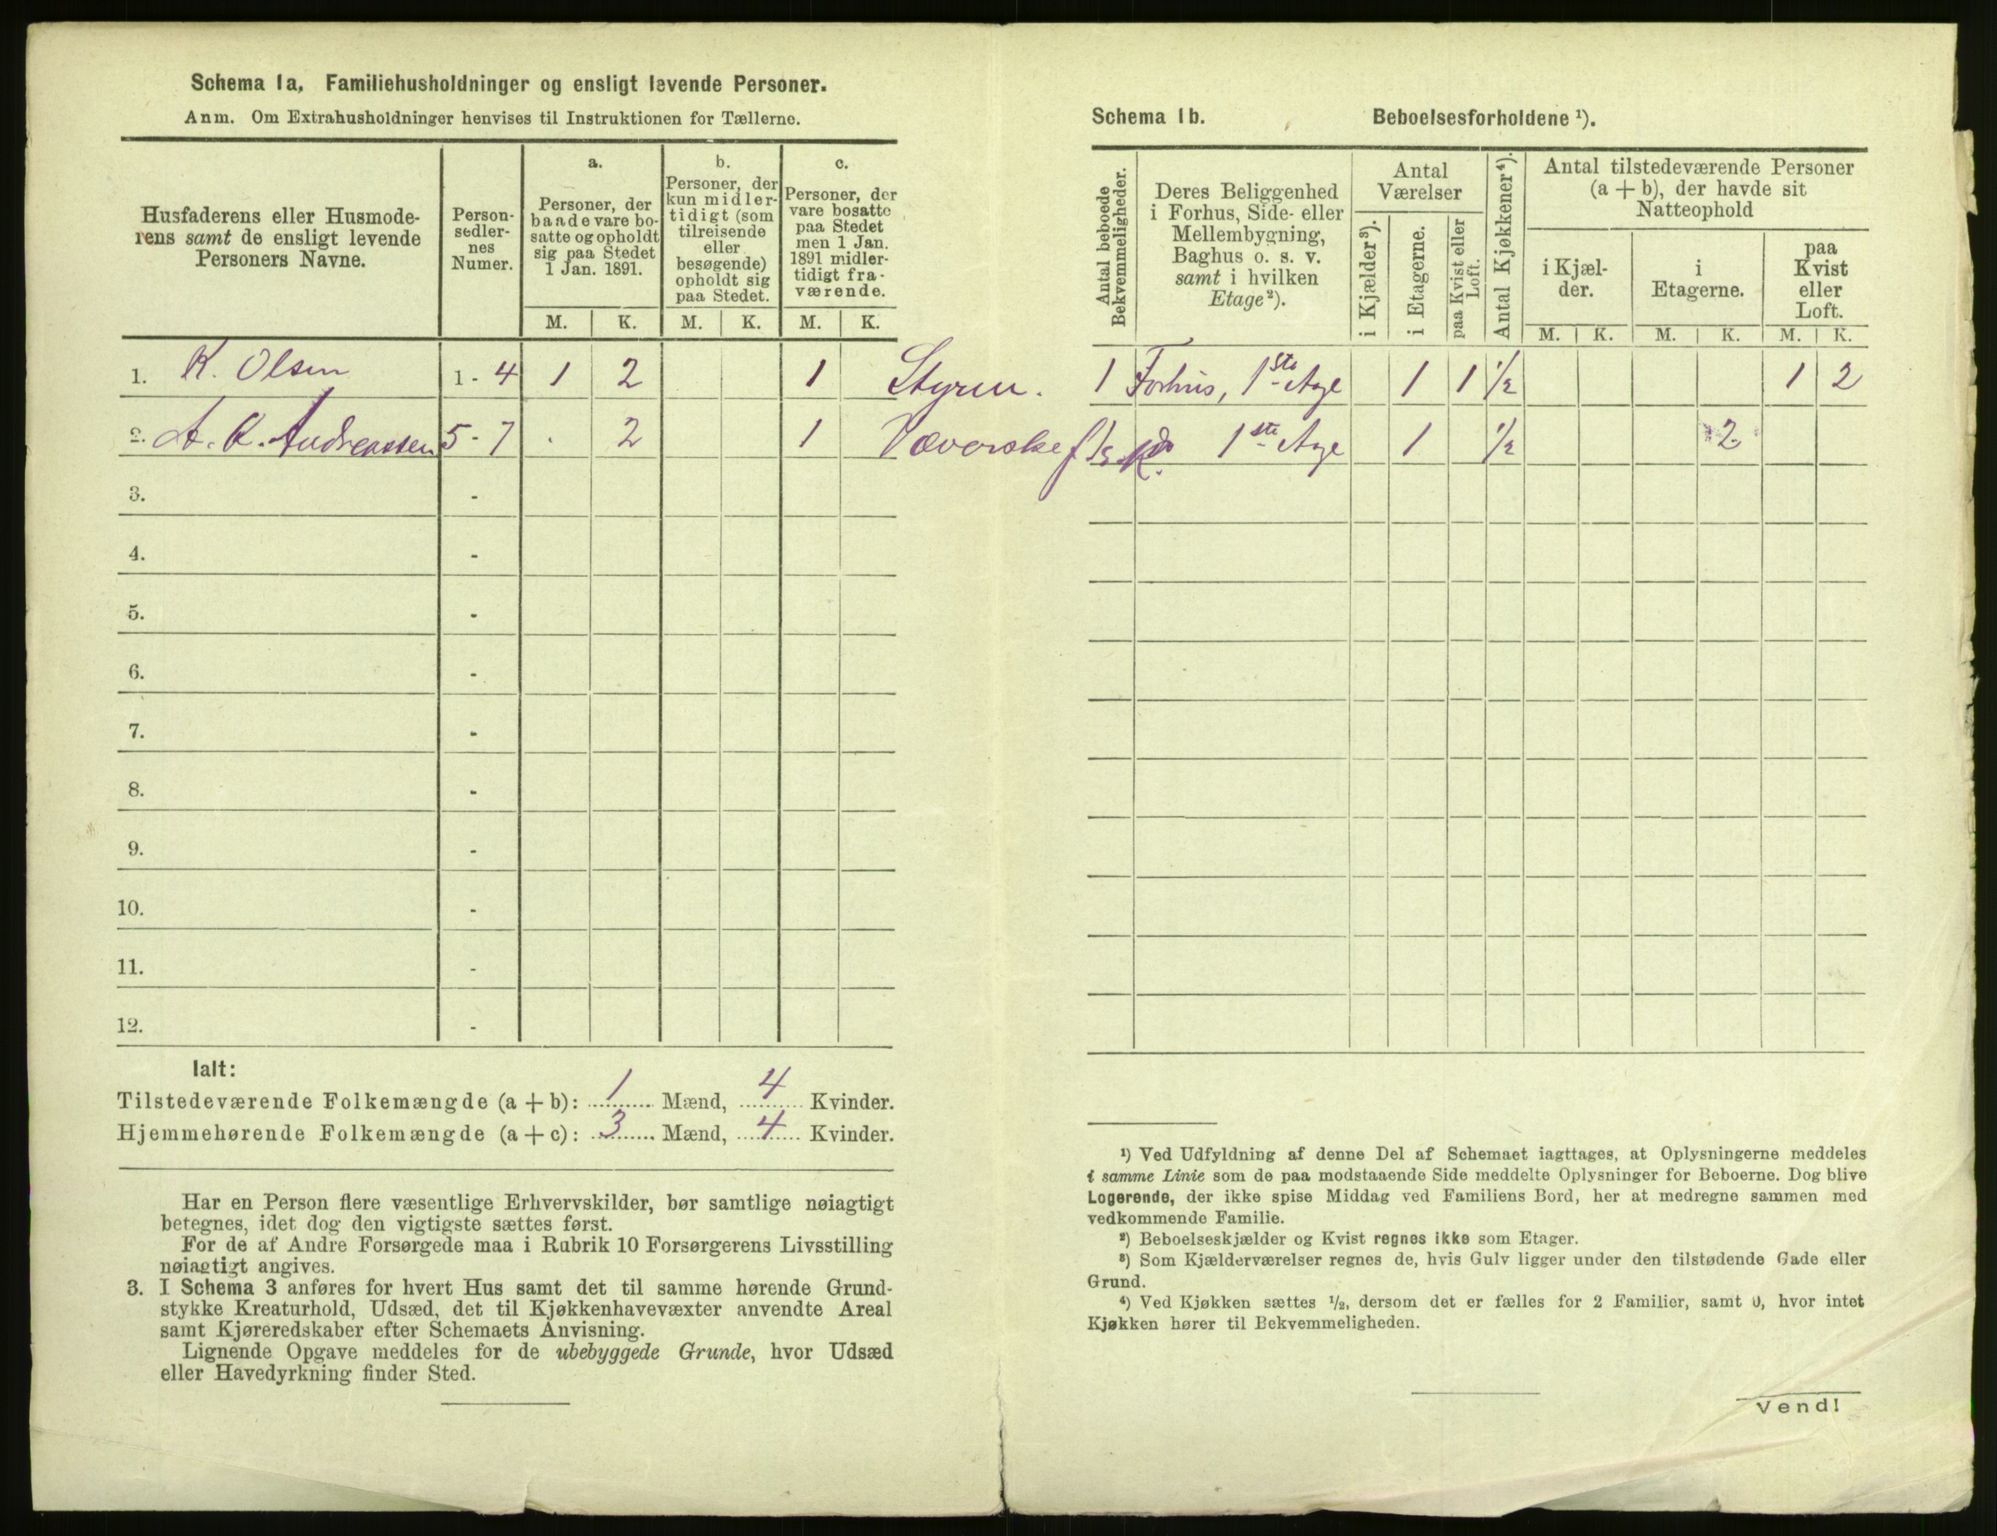 Schema 1a, Familiehusholdninger og ensligt levende Personer.
Anm. Om Extrahusholdninger henvises til Instruktionen for Tællerne.
Husfaderens eller Husmode-
rens samt de ensligt levende
Personers Navne.
Person-
sedler-
nes
Numer.
a.
Personer, der
baade vare bo-
satte og opholdt
sig paa Stedet
1 Jan. 1891.
b.
Personer, der
kun midler-
tidigt (som
tilreisende
eller
besøgende)
opholdt sig
paa Stedet.
c.
Personer, der
vare bosatte
paa Stedet
men 1 Jan.
1891 midler-
tidigt fra-
værende.
M. K. M. K. M. K.
1. K. Olsen 1 - 4 1 2 1 Styrm.
2. A. K. Andreassen 5 - 7 . 2 1 Væverske f/s.
3. -
4. -
5. -
6. -
7. -
8. -
9. -
10. -
11. -
12. -
Ialt:
Tilstedeværende Folkemængde (a + b): 1 Mænd, 4 Kvinder.
Hjemmehørende Folkemængde (a + c): 3 Mænd, 4 Kvinder.
Har en Person flere væsentlige Erhvervskilder, bør samtlige nøiagtigt
betegnes, idet dog den vigtigste sættes først.
For de af Andre Forsørgede maa i Rubrik 10 Forsørgerens Livsstilling
nøiagtigt angives.
3. I Schema 3 anføres for hvert Hus samt det til samme hørende Grund-
stykke Kreaturhold, Udsæd, det til Kjøkkenhavevæxter anvendte Areal
samt Kjøreredskaber efter Schemaets Anvisning.
Lignende Opgave meddeles for de ubebyggede Grunde, hvor Udsæd
eller Havedyrkning finder Sted.
Schema 1b. Beboelsesforholdene ¹).
Antal beboede
Bekvemmeligheder.
Deres Beliggenhed
i Forhus, Side- eller
Mellembygning,
Baghus o. s. v.
samt i hvilken
Etage ²).
Antal
Værelser
i Kjælder ³).
i Etagerne.
paa Kvist eller
Loft.
Antal Kjøkkener ⁴).
Antal tilstedeværende Personer
(a + b), der havde sit
Natteophold
i Kjæl-
der.
i
Etagerne.
paa
Kvist
eller
Loft.
M. K. M. K. M. K.
1 Forhus, 1ste Aage 1 1 1/2 1 2
do 1ste Aage 1 1/2 2
¹) Ved Udfyldning af denne Del af Schemaet iagttages, at Oplysningerne meddeles
i samme Linie som de paa modstaaende Side meddelte Oplysninger for Beboerne. Dog blive
Logerende, der ikke spise Middag ved Familiens Bord, her at medregne sammen med
vedkommende Familie.
²) Beboelseskjælder og Kvist regnes ikke som Etager.
³) Som Kjælderværelser regnes de, hvis Gulv ligger under den tilstødende Gade eller
Grund.
⁴) Ved Kjøkken sættes ½, dersom det er fælles for 2 Familier, samt 0, hvor intet
Kjøkken hører til Bekvemmeligheden.
Vend!